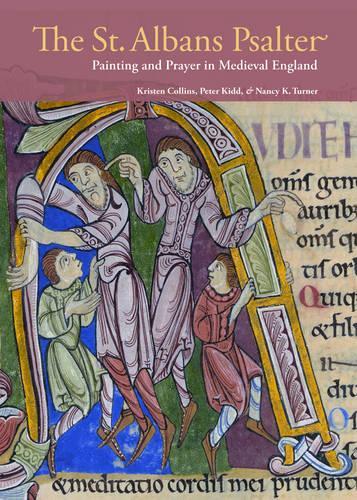 The St. Albans Psalter
Painting and Prayer in Medieval England
Kristen Collins, Peter Kidd, & Nancy K. Turner
UDITE H
omſ gen
auribꝰ
omſ qu
tiſ orb
Quiq
& fili
& meditatio cordiſ mei prudenti